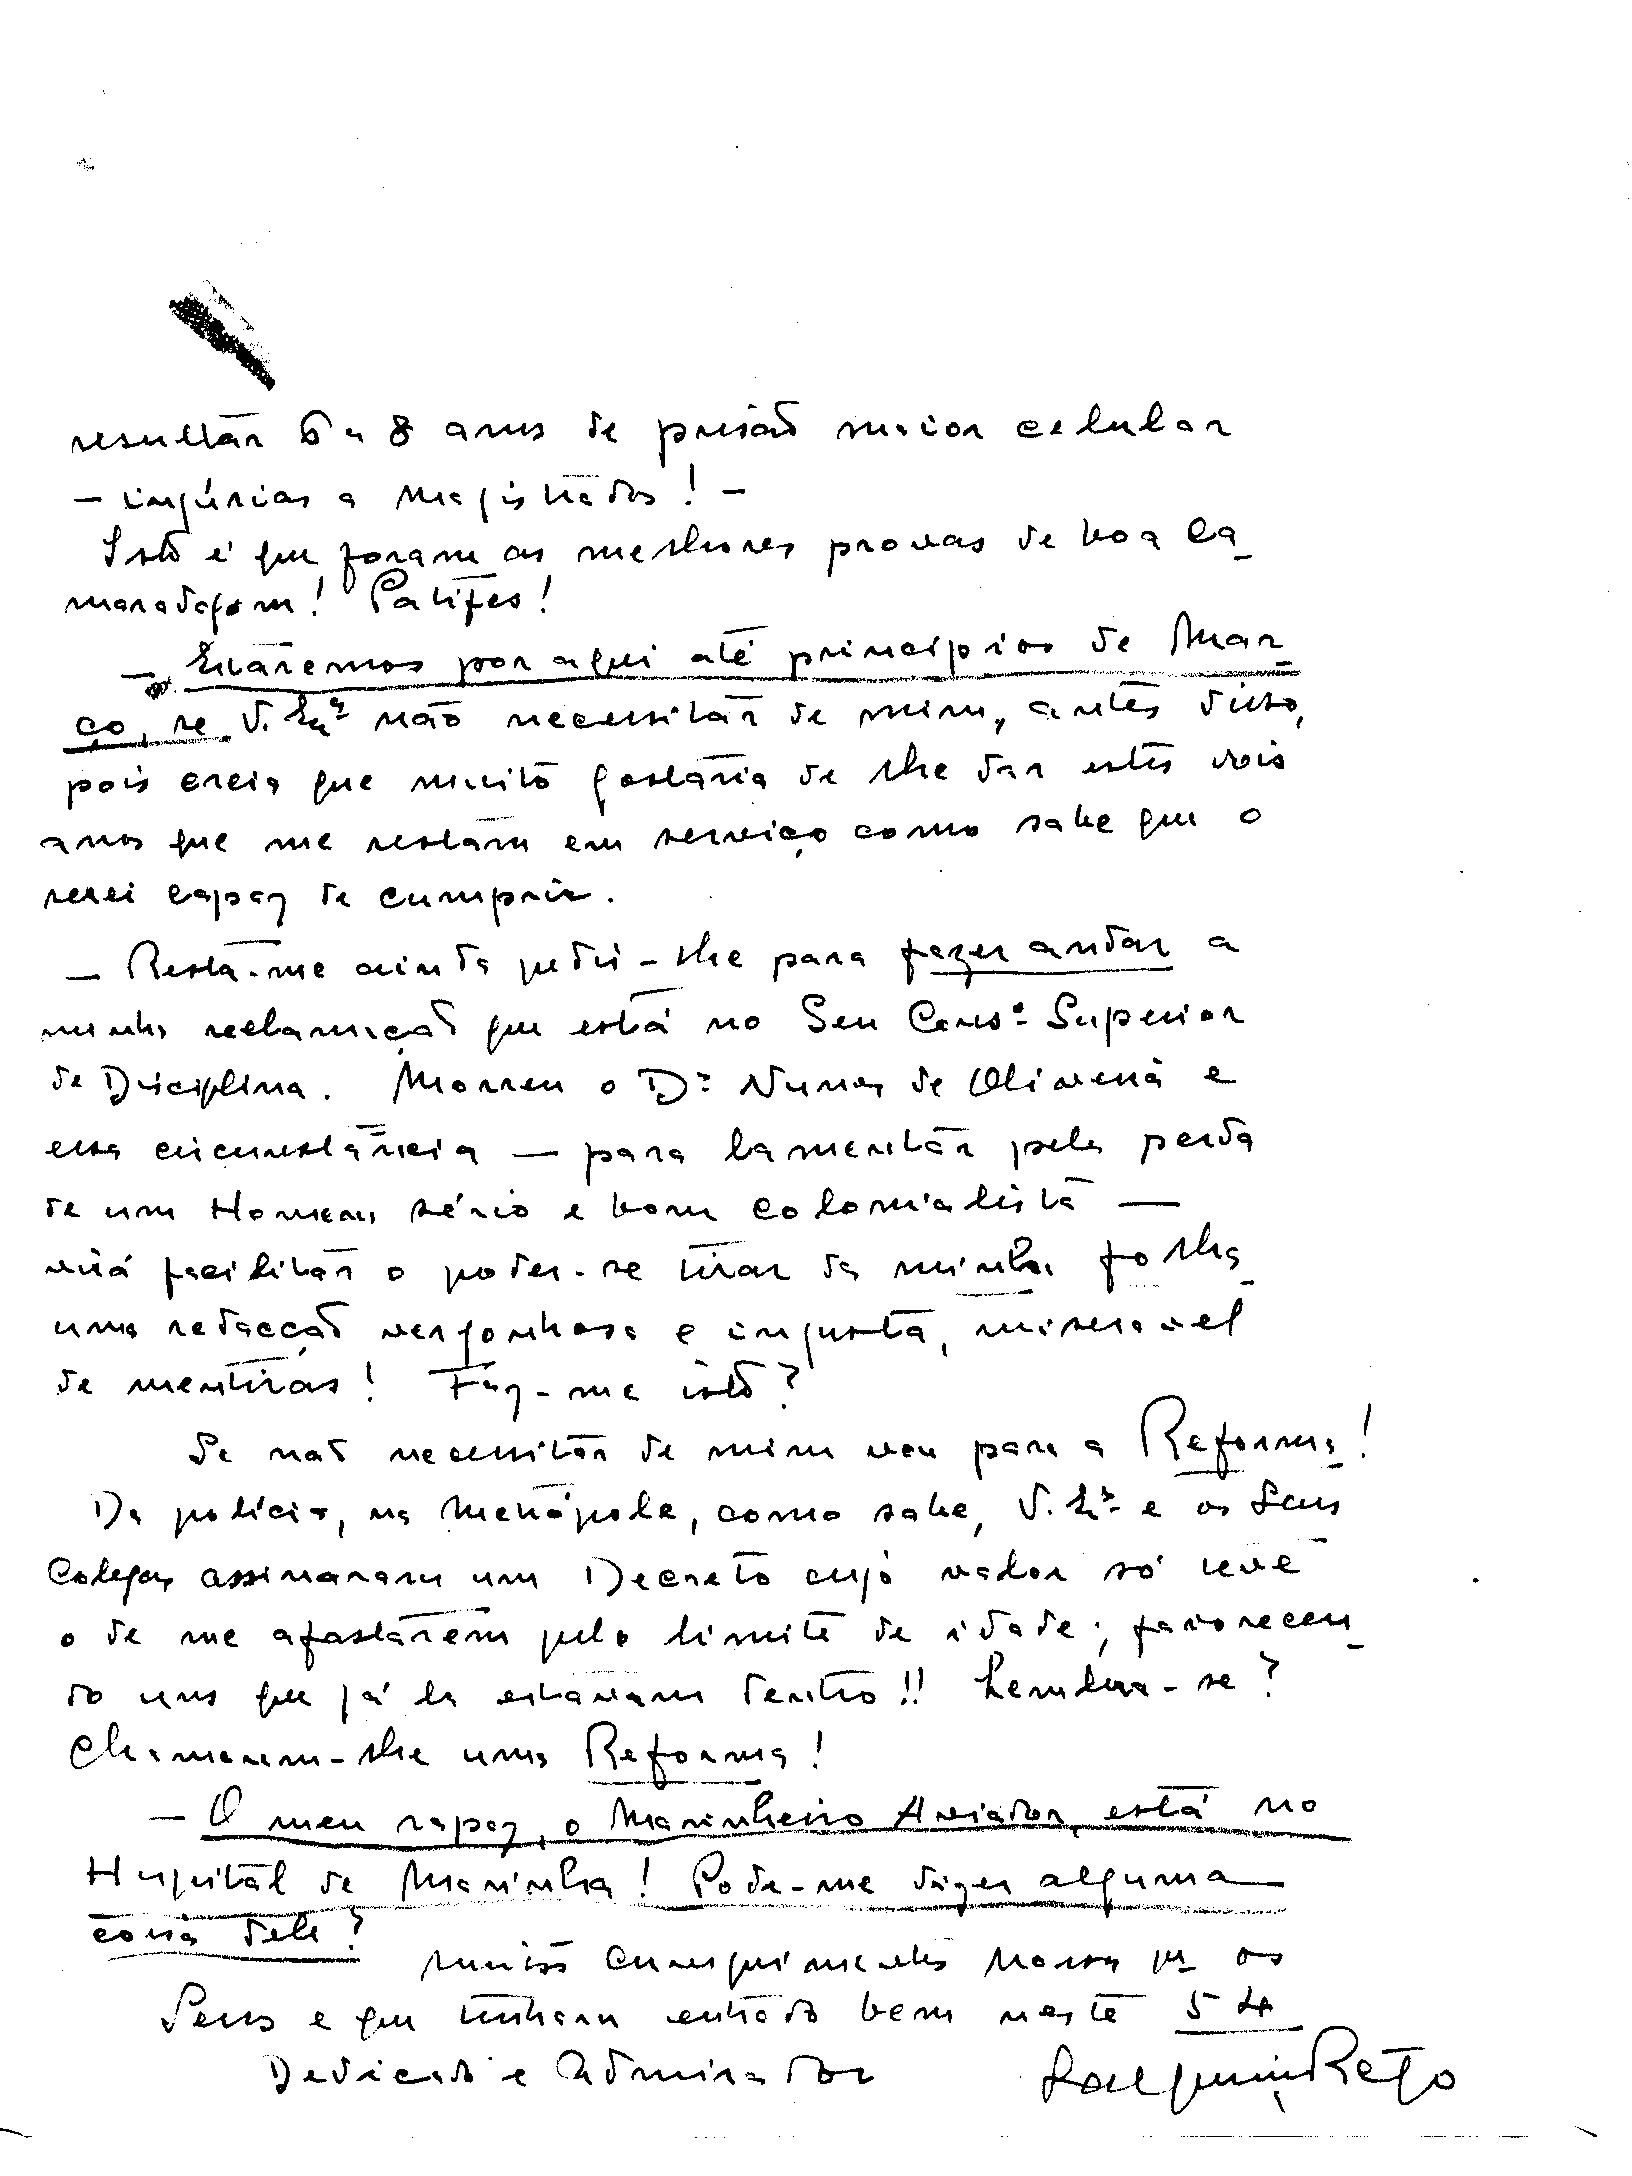 resultar 6 a 8 anos de prisão maior celular
- injúrias a magistrados! -
Isto é que foram as melhores provas de boa ca-
maradagem! Patifes!
- Estaremos por aqui até princípios de Mar-
ço, se V. Exª não necessitar de mim, antes disso,
pois creia que muito gostaria de lhe dar estes dois
anos que me restam em serviço como sabe que o
serei capaz de cumprir.
- Resta-me ainda pedir-lhe para fazer andar a
minha reclamação que está no Seu Consº Superior
de Disciplina. Morreu o Dr Nunes de Oliveira e
essa circunstância - para lamentar pela perda
de um Homem sério e bom colonialista -
virá facilitar o poder-se tirar da minha folha
uma redacção vergonhosa e injusta, miseravel
de mentiras! Faz-me isto?
Se não necessitar de mim vou para a Reforma!
Da polícia, na Metrópole, como sabe, V. Exª e os Seus
Colegas assinaram um Decreto cujo valor só teve
o de me afastarem pelo limite de idade; favorecen-
do uns que já la estavam dentro!! Lembra-se?
Chamaram-lhe uma Reforma!
- O meu rapaz, o Marinheiro Aviador, está no
Hospital de Marinha! Pode-me dizer alguma
coisa dele?
Muitos cumprimentos nossos pª os
Seus e que tenham entrado bem neste 54
Dedicado e Admirador Rego